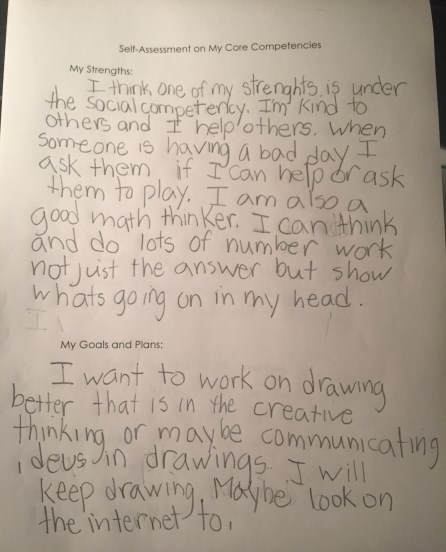 Self-Assessment on My Core Competencies
My Strengths:
I think one of my strenghts is under
the social competency. I'm kind to
others and I help others. When
someone is having a bad day I
ask them if I can help or ask
them to play. I am also a
good math thinker. I can think
and do lots of number work
not just the answer but show
whats going on in my head.
I
My Goals and Plans:
I want to work on drawing
better that is in the creative
thinking or maybe communicating
ideus in drawings. I will
keep drawing. Maybe look on
the internet to.